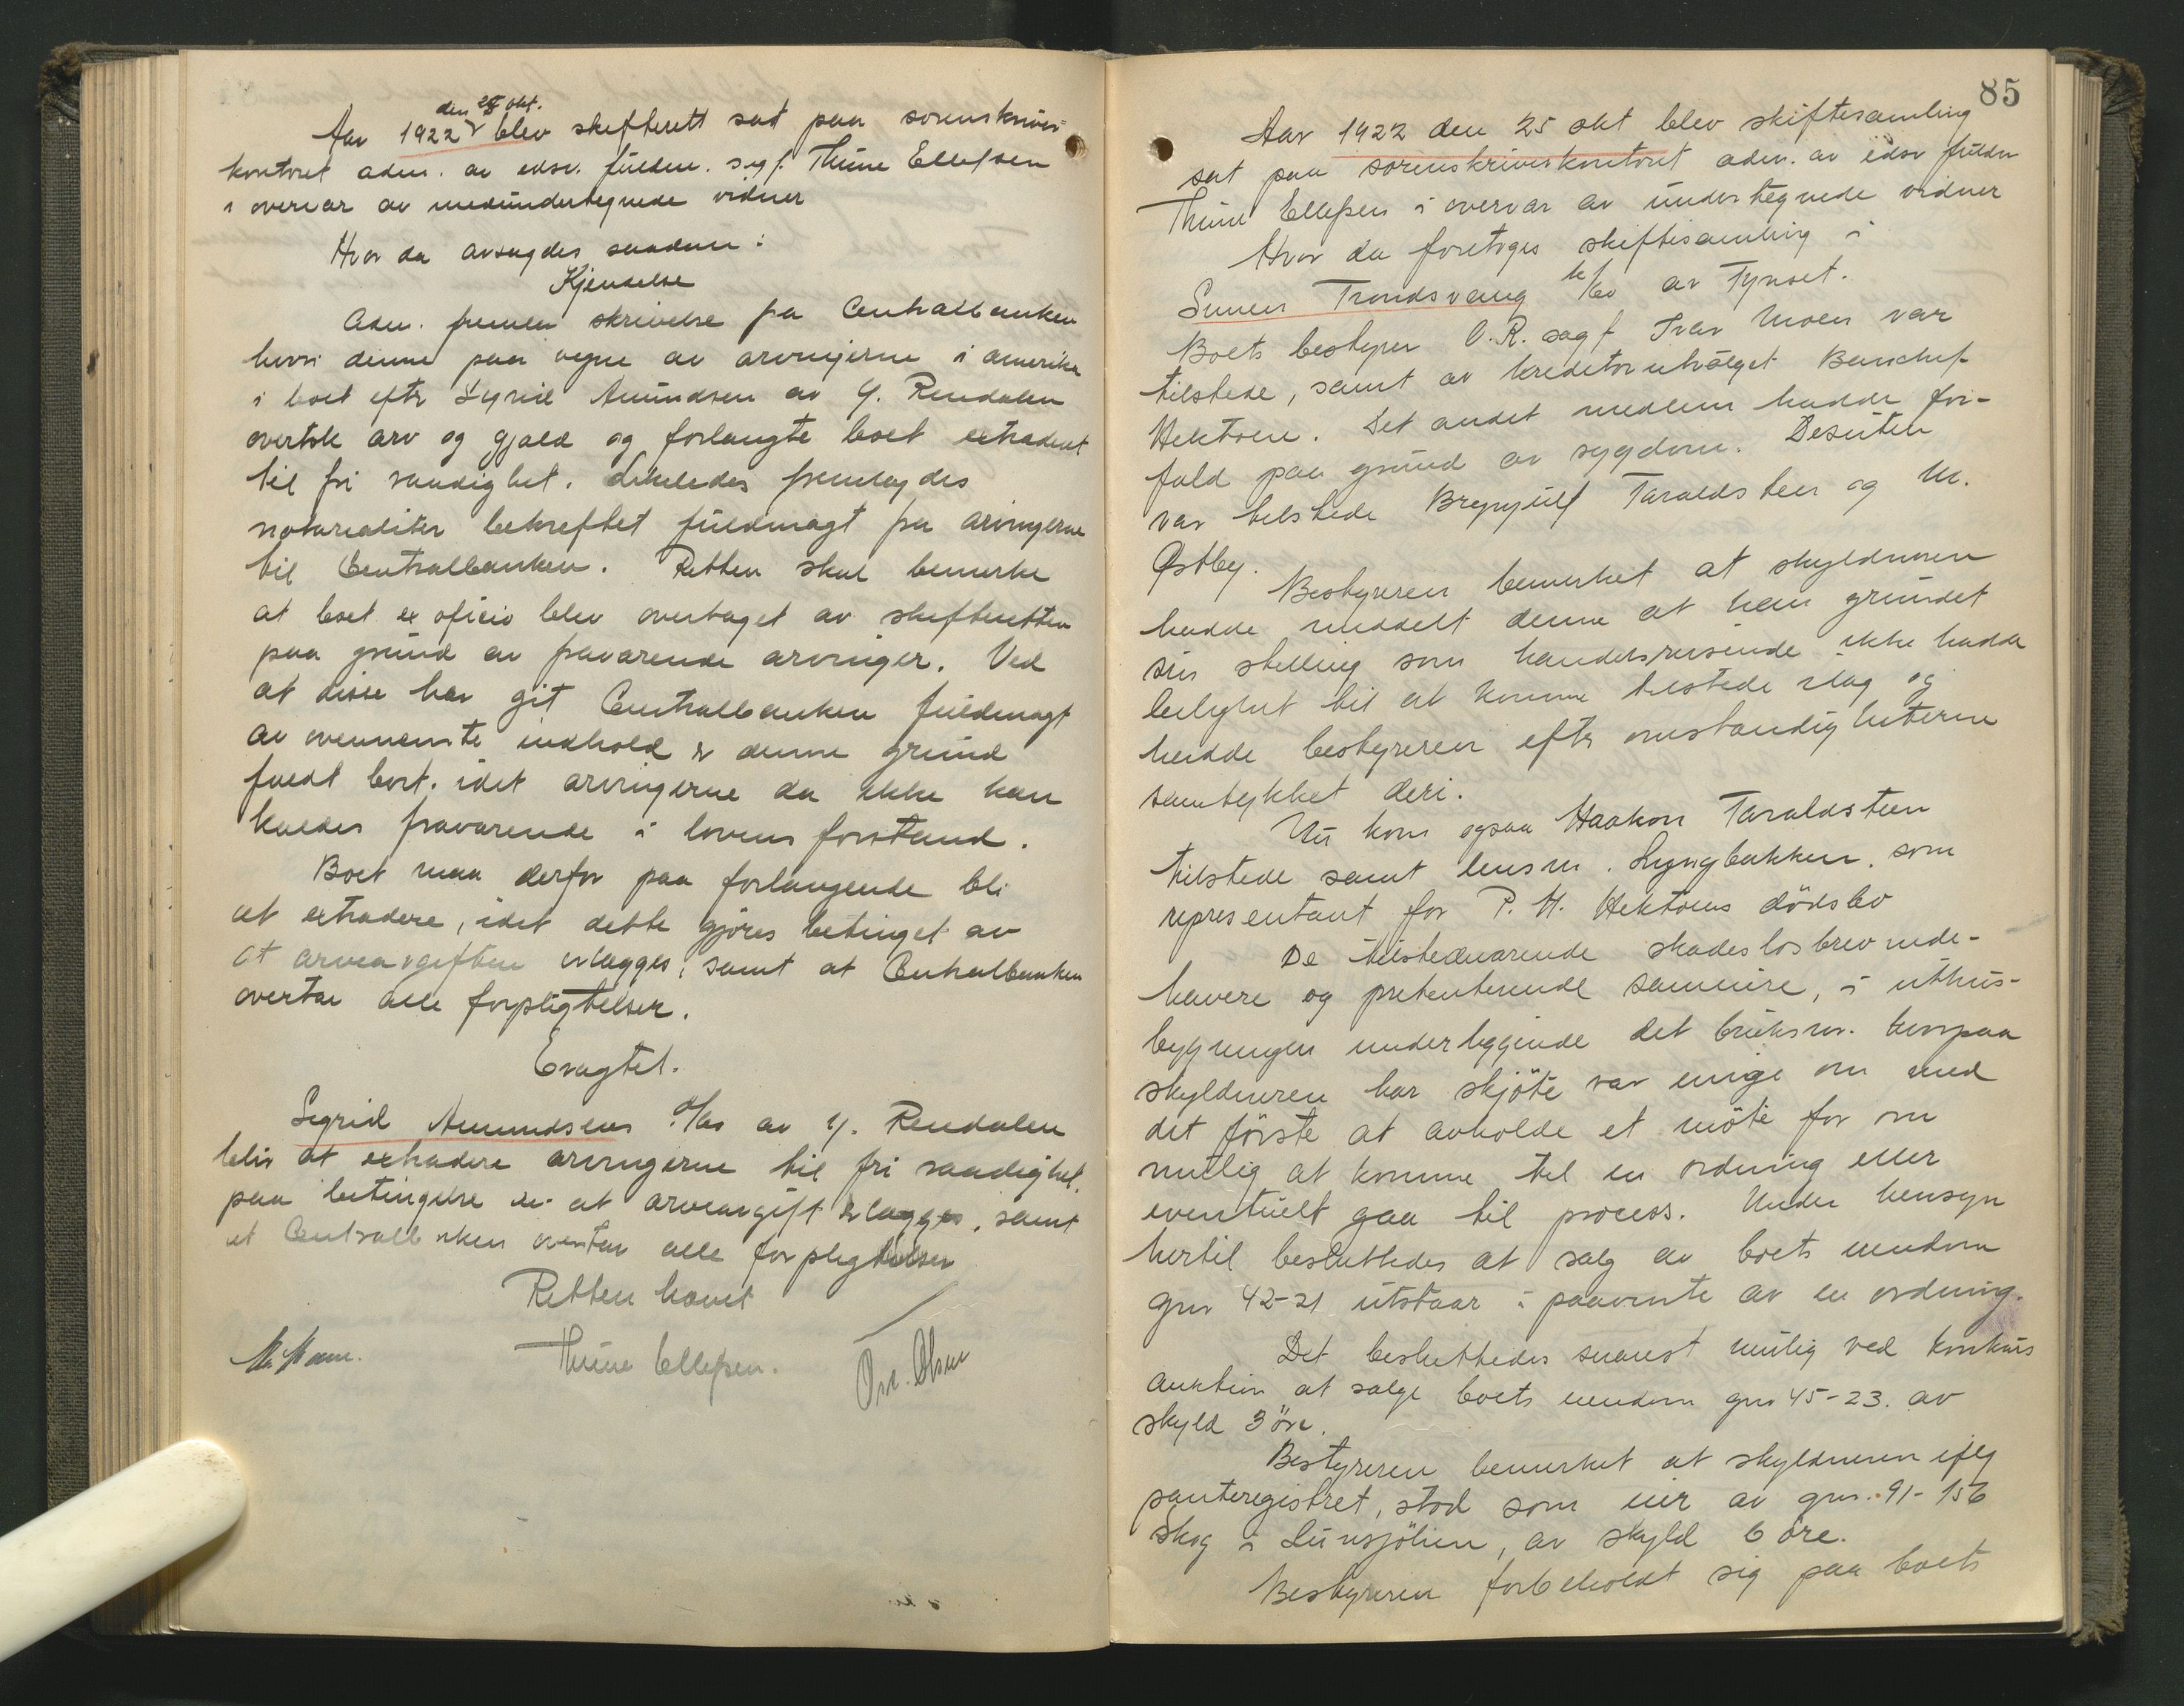 den 25 okt.
Aar 1922 blev skifterett sat paa sorenskriver-
kontoret adm. av edsv. fuldm. sagf. Thune Ellefsen
i overvar av medundertegnede vidner
Hvor da avsagdes saadan:
Kjendelse
Adm. fremla skrivelse fra Centralbanken
hvori denne paa vegne av arvingerne i amerika
i boet efter Sigrid Amundsen av Y. Rendalen
overtok arv og gjæld og forlangte boet extradert
til fri raadighet. Likeledes fremlagdes
notarialiter bekreftet fuldmagt fra arvingerne
til Centralbanken. Retten skal bemerke
at boet ex oficio blev overtaget av skifteretten
paa grund av fraværende arvinger. Ved
at disse har git Centralbanken fuldmagt
av ovennevnte indhold er denne grund
faldt bort. idet arvingerne da ikke kan
kaldes fraværende i lovens forstand.
Boet maa derfor paa forlangende bli
at extradere, idet dette gjøres betinget av
at arveavgiften erlægges, samt at Centralbanken
overtar alle forpligtelser.
Eragtet.
Sigrid Amundsens d/bo av Y. Rendalen
blir at extradere arvingerne til fri raadighet.
paa betingelse av at arveavgift erlægges, samt
at Centralbanken overtar alle forpligtelser
Retten hævet
Thune Ellefsen.
Osc. Olsen
85
Aar 1922 den 25 okt blev skiftesamling
sat paa sorenskriverkontoret adm. av edsv fuldm
Thune Ellefsen i overvar av undertegnede vidner
Hvor da foretoges skiftesamling i
Simen Trondsvang k/bo av Tynset.
Boets bestyrer O.R. sagf Ivar Moen var
tilstede, samt av kreditorutvalget Bankchef
Hektoen. Det andet medlem hadde for-
fald paa grund av sygdom. Desuten
var tilstede Brynjulf Taraldsteen og M.
Østby.
Bestyreren bemerket at skyldneren
hadde meddelt denne at han grundet
sin stilling som handelsreisende ikke hadde
leilighet til at komme tilstede idag og
hadde bestyreren efter omstændigheterne
samtykket deri.
Nu kom ogsaa Haakon Taraldsteen
tilstede samt lensm. Lyngbakken. som
representant for P. H. Hektoens dödsbo
De tilstedeværende skadeslosbrev inde-
havere og pretenterende sameiere, i uthus-
bygningen underliggende det bruksnr. hvorpaa
skyldneren har skjöte var enige om med
det förste at avholde et möte for om
mulig at komme til en ordning eller
eventuelt gaa til process. Under hensyn
hertil besluttedes at salg av boets eiendom
gnr 42-21 utstaar i paavente av en ordning.
Det besluttedes snarest mulig ved konkurs
auktion at sælge boets eiendom gnr 45-23. av
skyld 3 öre.
Bestyreren bemerket at skyldneren ifög
panteregistret, stod som eier av gnr. 91-156
skog i Lunsjölien, av skyld 6 öre.
Bestyreren forbeholdt sig paa boets